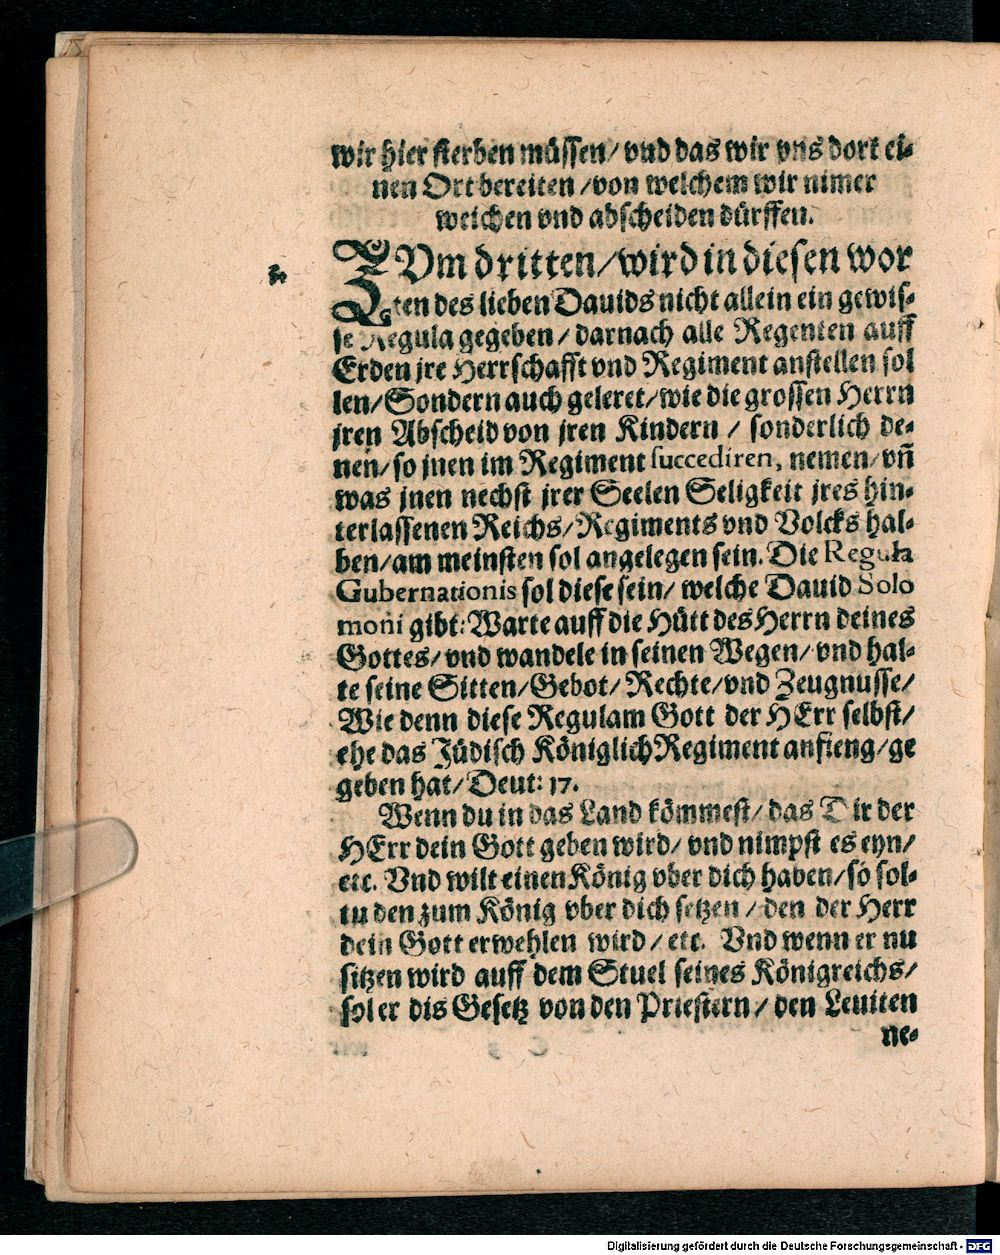 wir hier sterben müssen/ vnd das wir vns dort ei-
nen Ort bereiten/ von welchem wir nimer
weichen vnd abscheiden dürffen.
ZVm dritten/ wird in diesen wor
ten des lieben Dauids nicht allein ein gewis-
se Regula gegeben/ darnach alle Regenten auff
Erden jre Herrschafft vnd Regiment anstellen sol
len/ Sondern auch geleret/ wie die grossen Herrn
jren Abscheid von jren Kindern/ sonderlich de-
nen/ so jnen im Regiment succediren, nemen/ vñ
was jnen nechst jrer Seelen Seligkeit jres hin-
terlassenen Reichs/ Regiments vnd Volcks hal-
ben/ am meinsten sol angelegen sein. Die Regula
Gubernationis sol diese sein/ welche Dauid Solo
moni gibt: Warte auff die Hütt des Herrn deines
Gottes/ vnd wandele in seinen Wegen/ vnd hal-
te seine Sitten/ Gebot/ Rechte/ vnd Zeugnusse/
Wie denn diese Regulam Gott der HErr selbst/
ehe das Jüdisch Königlich Regiment anfieng/ ge
geben hat/ Deut: 17.
Wenn du in das Land kömmest/ das Dir der
HErr dein Gott geben wird/ vnd nimpst es eyn/
etc. Vnd wilt einen König vber dich haben/ so sol-
tu den zum König vber dich setzen/ den der Herr
dein Gott erwehlen wird/ etc. Vnd wenn er nu
sitzen wird auff dem Stuel seines Königreichs/
sol er dis Gesetz von den Priestern/ den Leuiten
ne-
Digitalisierung gefördert durch die Deutsche Forschungsgemeinschaft - DFG